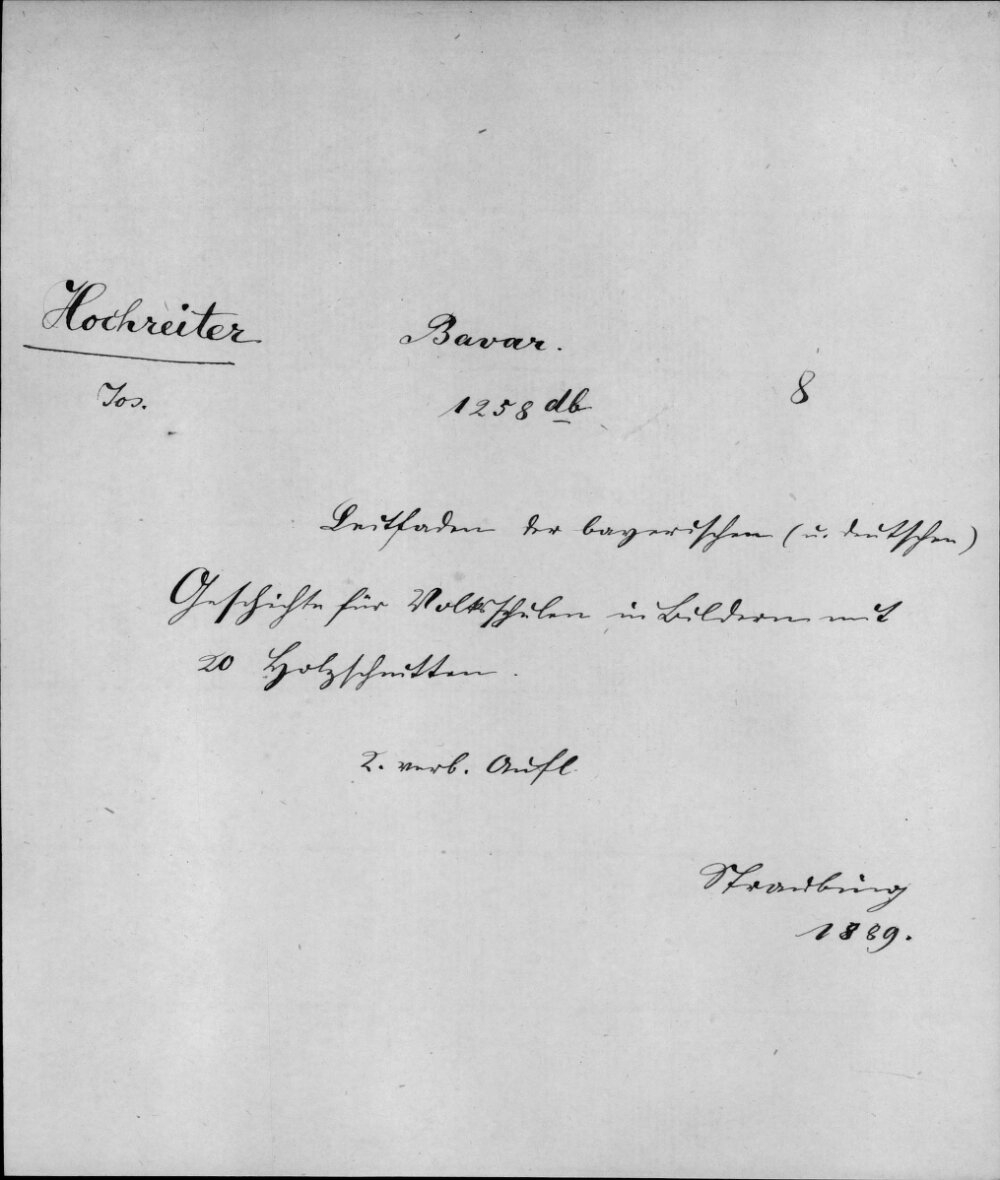 Hochreiter
Jos.
Bavar.
1258 db
8
Leitfaden der bayerischen (u. deutschen)
Geschichte für Volksschulen in Bildern mit
20 Holzschnitten.
2. verb. Aufl.
Straubing
1889.